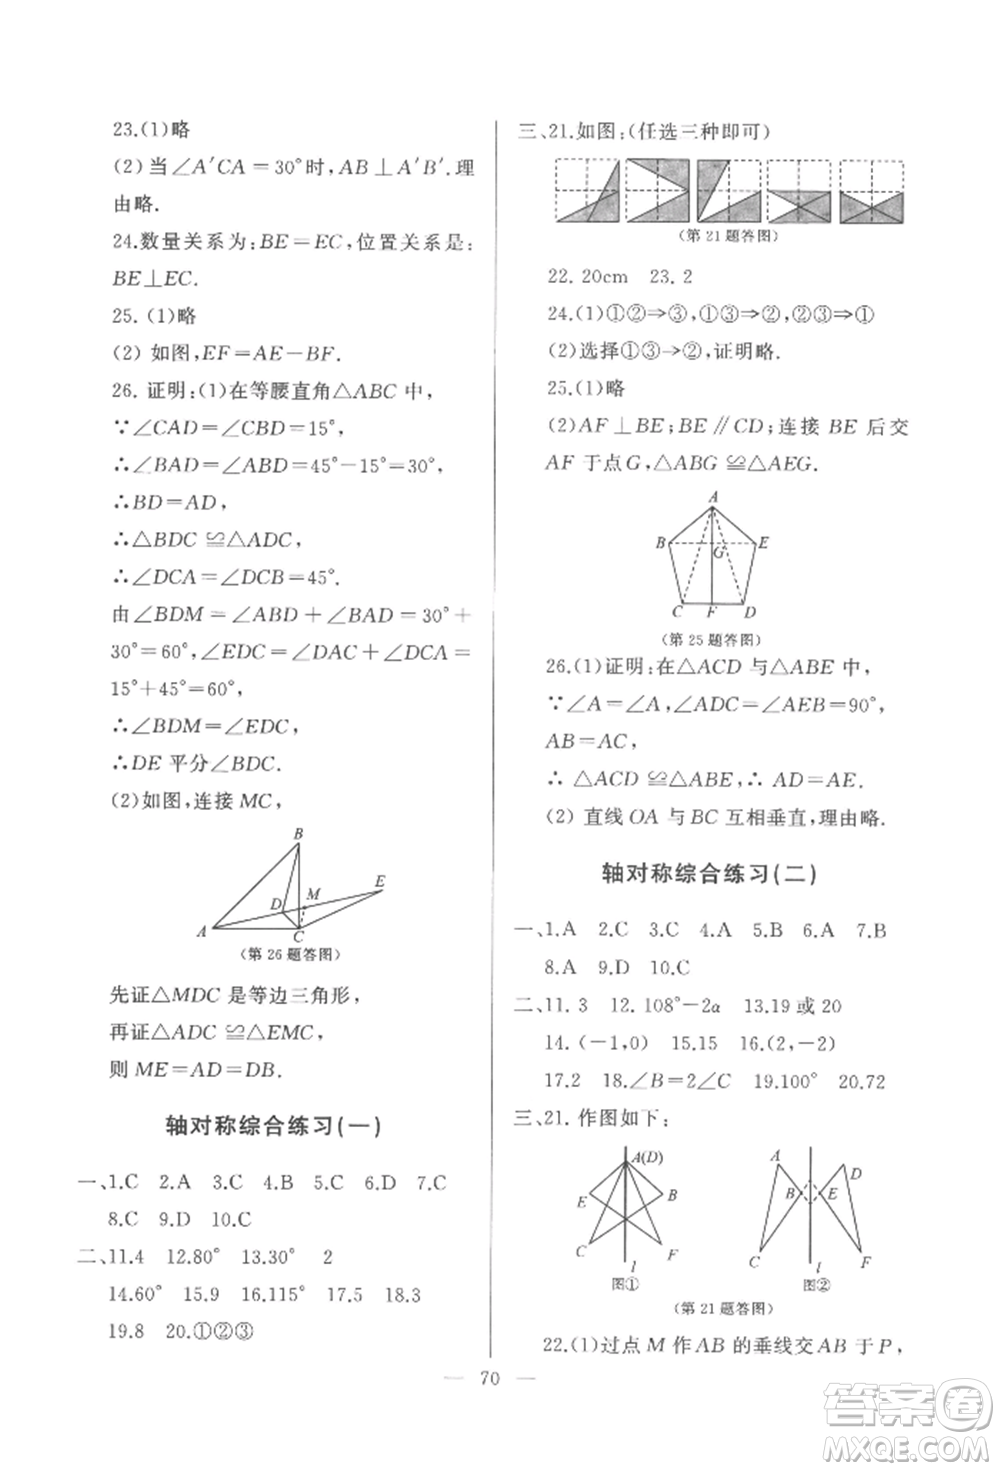 23.(1)略
(2)当∠A′CA=30°时,AB⊥A′B′.理
由略.
24.数量关系为:BE=EC,位置关系是:
BE⊥EC.
25.(1)略
(2) 如图,EF=AE-BF.
26.证明:(1)在等腰直角△ABC 中,
∵∠CAD=∠CBD=15°,
∴∠BAD=∠ABD=45°-15°=30°,
∴BD=AD,
∴△BDC≌△ADC,
∴∠DCA=∠DCB=45°.
由∠BDM=∠ABD+∠BAD=30°+
30°=60°,∠EDC=∠DAC+∠DCA=
15°+45°=60°,
∴∠BDM=∠EDC,
∴DE 平分∠BDC.
(2)如图,连接 MC,
B
E
M
D
A
C
(第 26 题答图)
先证△MDC 是等边三角形,
再证△ADC≌△EMC,
则 ME=AD=DB.
轴对称综合练习(一)
一、1.C 2.A 3.C 4.C 5.C 6.D 7.C
8.C 9.D 10.C
二、11.4 12.80° 13.30° 2
14.60° 15.9 16.115° 17.5 18.3
19.8 20.①②③
三、21.如图:(任选三种即可)
(第 21 题答图)
22.20cm 23.2
24.(1)①②⇒③,①③⇒②,②③⇒①
(2)选择①③⇒②,证明略.
25.(1)略
(2)AF⊥BE;BE∥CD;连接 BE 后交
AF 于点G,△ABG≌△AEG.
A
B
E
G
C F D
(第 25 题答图)
26.(1)证明:在△ACD 与△ABE 中,
∵∠A=∠A,∠ADC=∠AEB=90°,
AB=AC,
∴ △ACD≌△ABE,∴ AD=AE.
(2) 直线 OA 与 BC 互相垂直,理由略.
轴对称综合练习(二)
一、1.A 2.C 3.C 4.A 5.B 6.A 7.B
8.A 9.D 10.C
二、11.3 12.108°-2α 13.19 或 20
14.(-1,0) 15.15 16.(2,-2)
17.2 18.∠B=2∠C 19.100° 20.72
三、21. 作图如下:
A(D)
E
B
C
F
l
图①
A
D
B
E
C
F
l
图②
(第 21 题答图)
22.(1)过点 M 作 AB 的垂线交 AB 于 P,
— 70 —
答案卷
MXQE.COM